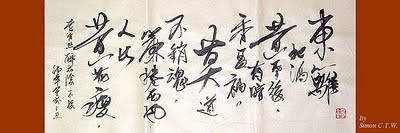 東籬
把酒
黃昏後
有暗
香盈袖
莫道
不銷魂
簾捲西風
人比
黃花瘦
李清照醉花陰
By
Simon C.T.W.